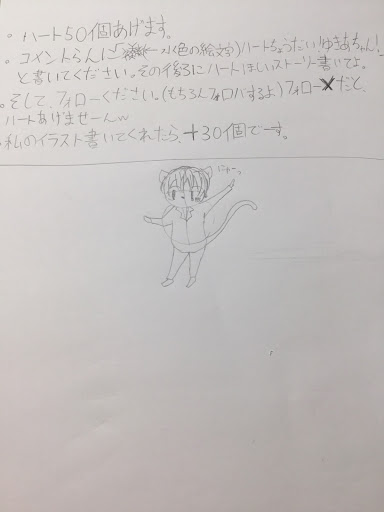 ・ハート50個あげます。
・コメントらんに「(水色の絵文字)ハートちょうだい!ゆきあちゃん!
と書いてください。その後ろにハートほしいストーリー書いてよ。
・そして、フォローください。(もちろんフォロバするよ)フォロー✗だと、
ハートあげませーんw
・私のイラスト書いてくれたら、+30個でーす。
にゃーっ